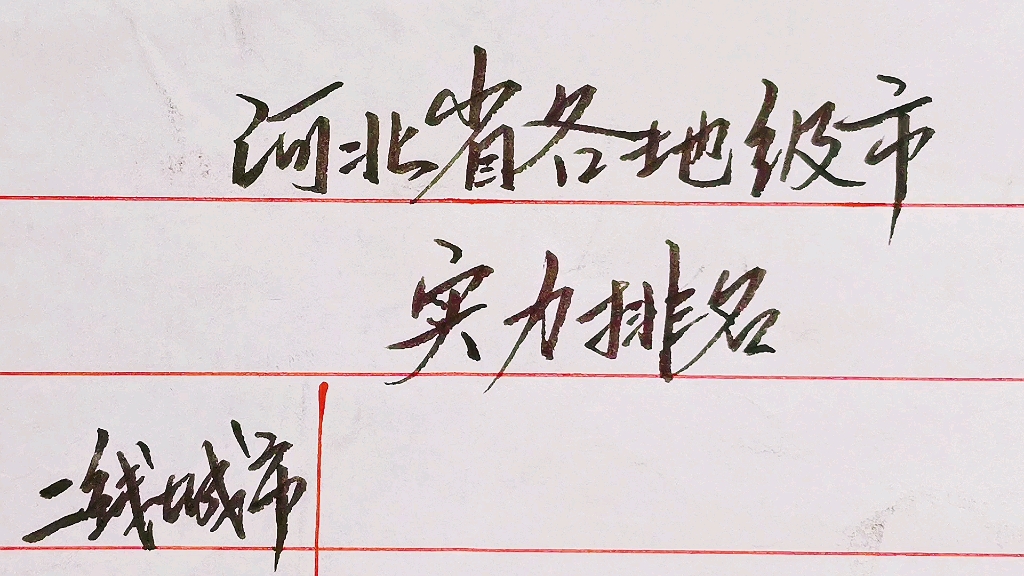 河北省各地级市
实力排名
二线城市